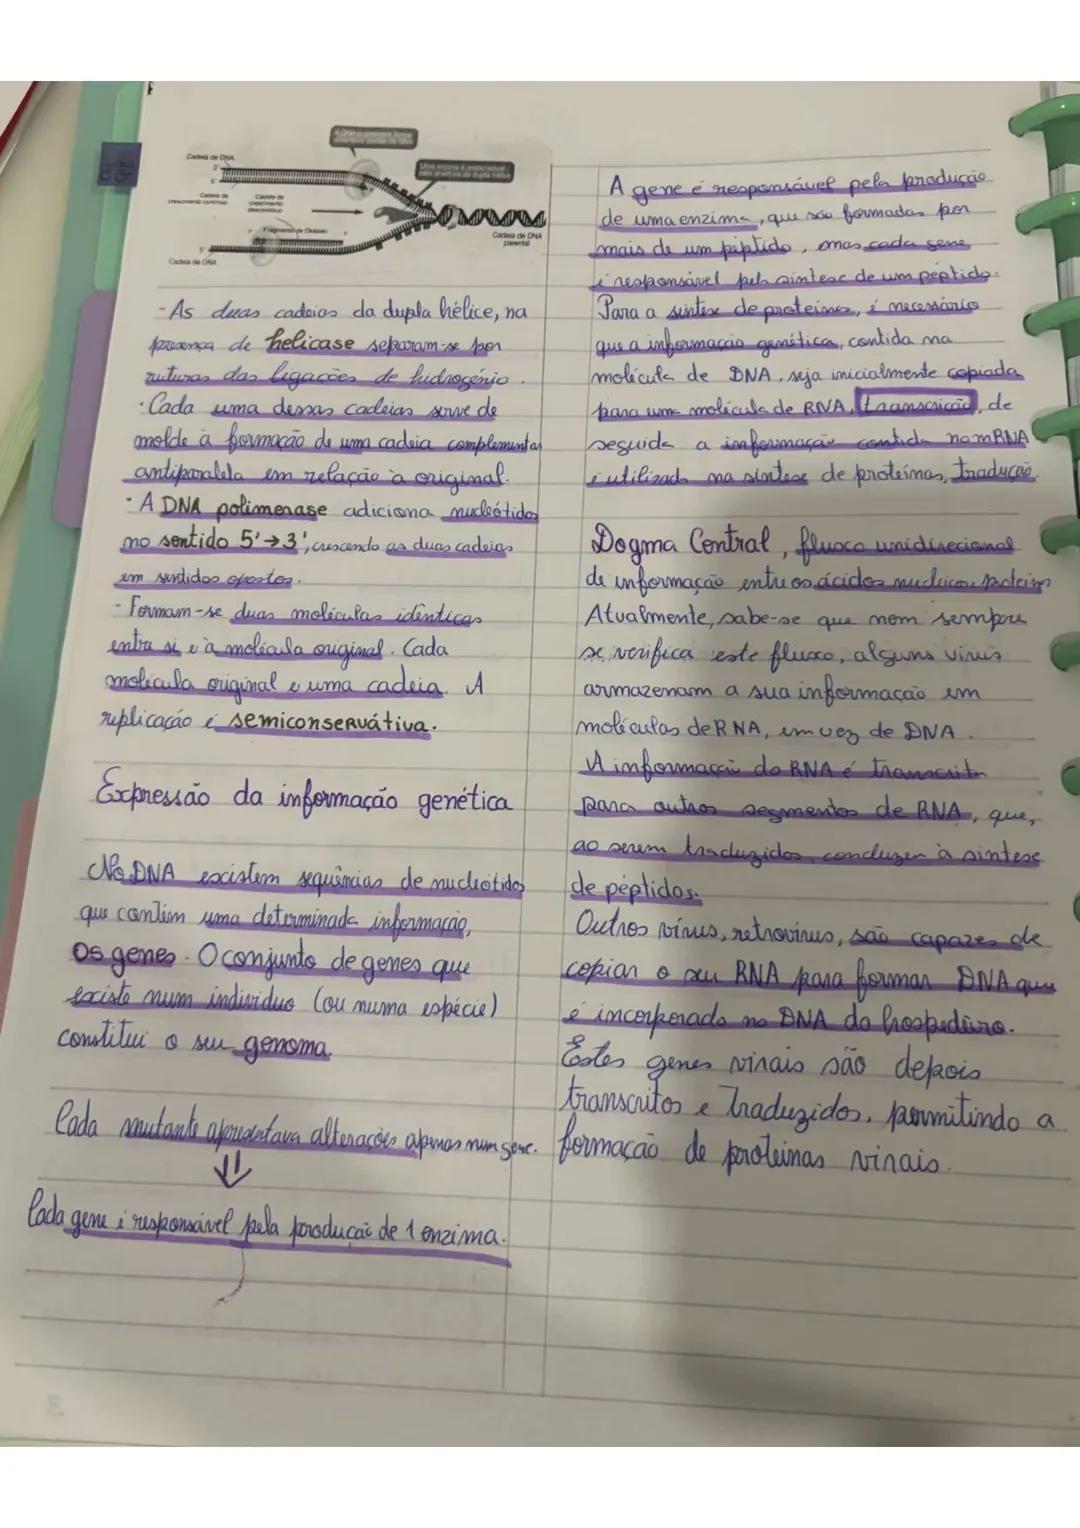 Cadeia de DNA
3'
5'
Cadeia de
crescimento contínuo
Cadeia de
crescimento
descontínuo
Fragmento de Okazaki
3'
5'
Cadeia de DNA
Cadeia de DNA
parental
- As duas cadeias da dupla hélice, na
presença de helicase separam-se por
ruturas das ligações de hidrogénio.
· Cada uma dessas cadeias serve de
molde à formação de uma cadeia complementar
antiparalela em relação à original.
· A DNA polimerase adiciona nucleótidos
no sentido 5'→3', crescendo as duas cadeias
em sentidos opostos.
- Formam-se duas moléculas idênticas
entre si e à molécula original. Cada
molécula original e uma cadeia. A
replicação é semiconservátiva.
Expressão da informação genética
No DNA existem sequências de nucleótidos
que contêm uma determinada informação,
os genes. O conjunto de genes que
existe num individuo (ou numa espécie)
constitui o seu genoma.
Cada mutante apresentava alterações apenas num gene.
⇓
Cada gene é responsável pela produção de 1 enzima.
A gene é responsável pela produção
de uma enzima, que são formadas por
mais de um péptido, mas cada gene
é responsável pela síntese de um péptido.
Para a síntese de proteínas, é necessário
que a informação genética, contida na
molécula de DNA, seja inicialmente copiada
para uma molécula de RNA, transcrição, de
seguida a informação contida no mRNA
é utilizada na síntese de proteínas, tradução.
Dogma Central, fluxo unidirecional
de informação entre os ácidos nucleicos e proteínas
Atualmente, sabe-se que nem sempre
se verifica este fluxo, alguns vírus
armazenam a sua informação em
moléculas de RNA, em vez de DNA.
A informação do RNA é transcrita
para outros segmentos de RNA, que,
ao serem traduzidos, conduzem à síntese
de péptidos.
Outros vírus, retrovírus, são capazes de
copiar o seu RNA para formar DNA que
é incorporado no DNA do hospedeiro.
Estes genes virais são depois
transcritos e traduzidos, permitindo a
formação de proteínas virais.
8